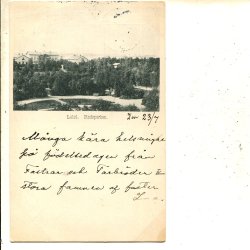 Luleå. Stadsparken.
den 23/7
Många kära helsningar
på födelsedagen från
Fastrar och Farbröder &
stora famnen af faster
L—a.